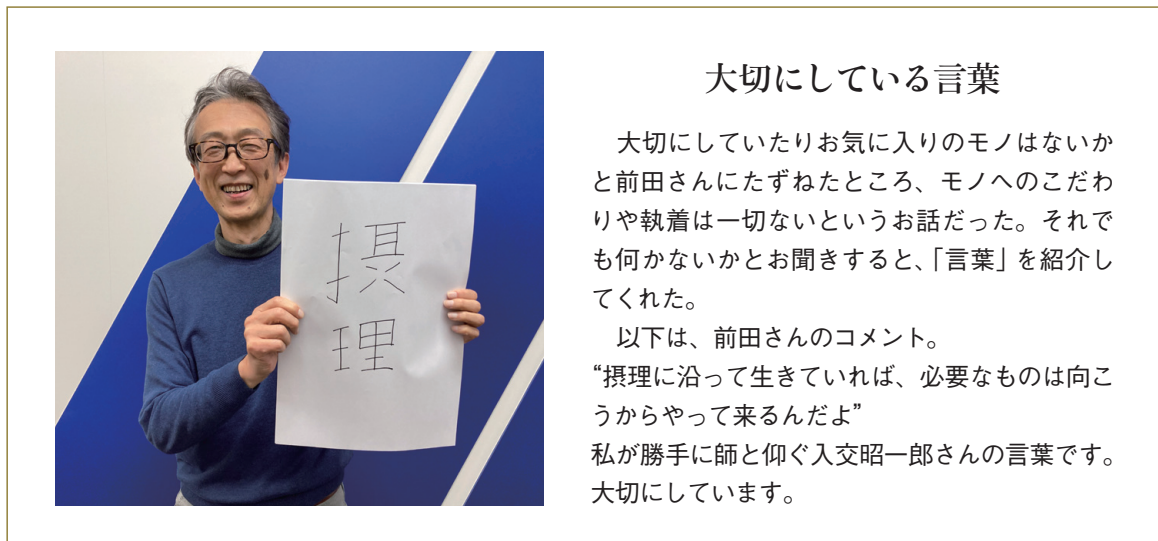 摂
理
大切にしている言葉
　大切にしていたりお気に入りのモノはないか
と前田さんにたずねたところ、モノへのこだわ
りや執着は一切ないというお話だった。それで
も何かないかとお聞きすると、「言葉」を紹介し
てくれた。
　以下は、前田さんのコメント。
“摂理に沿って生きていれば、必要なものは向こ
うからやって来るんだよ”
私が勝手に師と仰ぐ入交昭一郎さんの言葉です。
大切にしています。